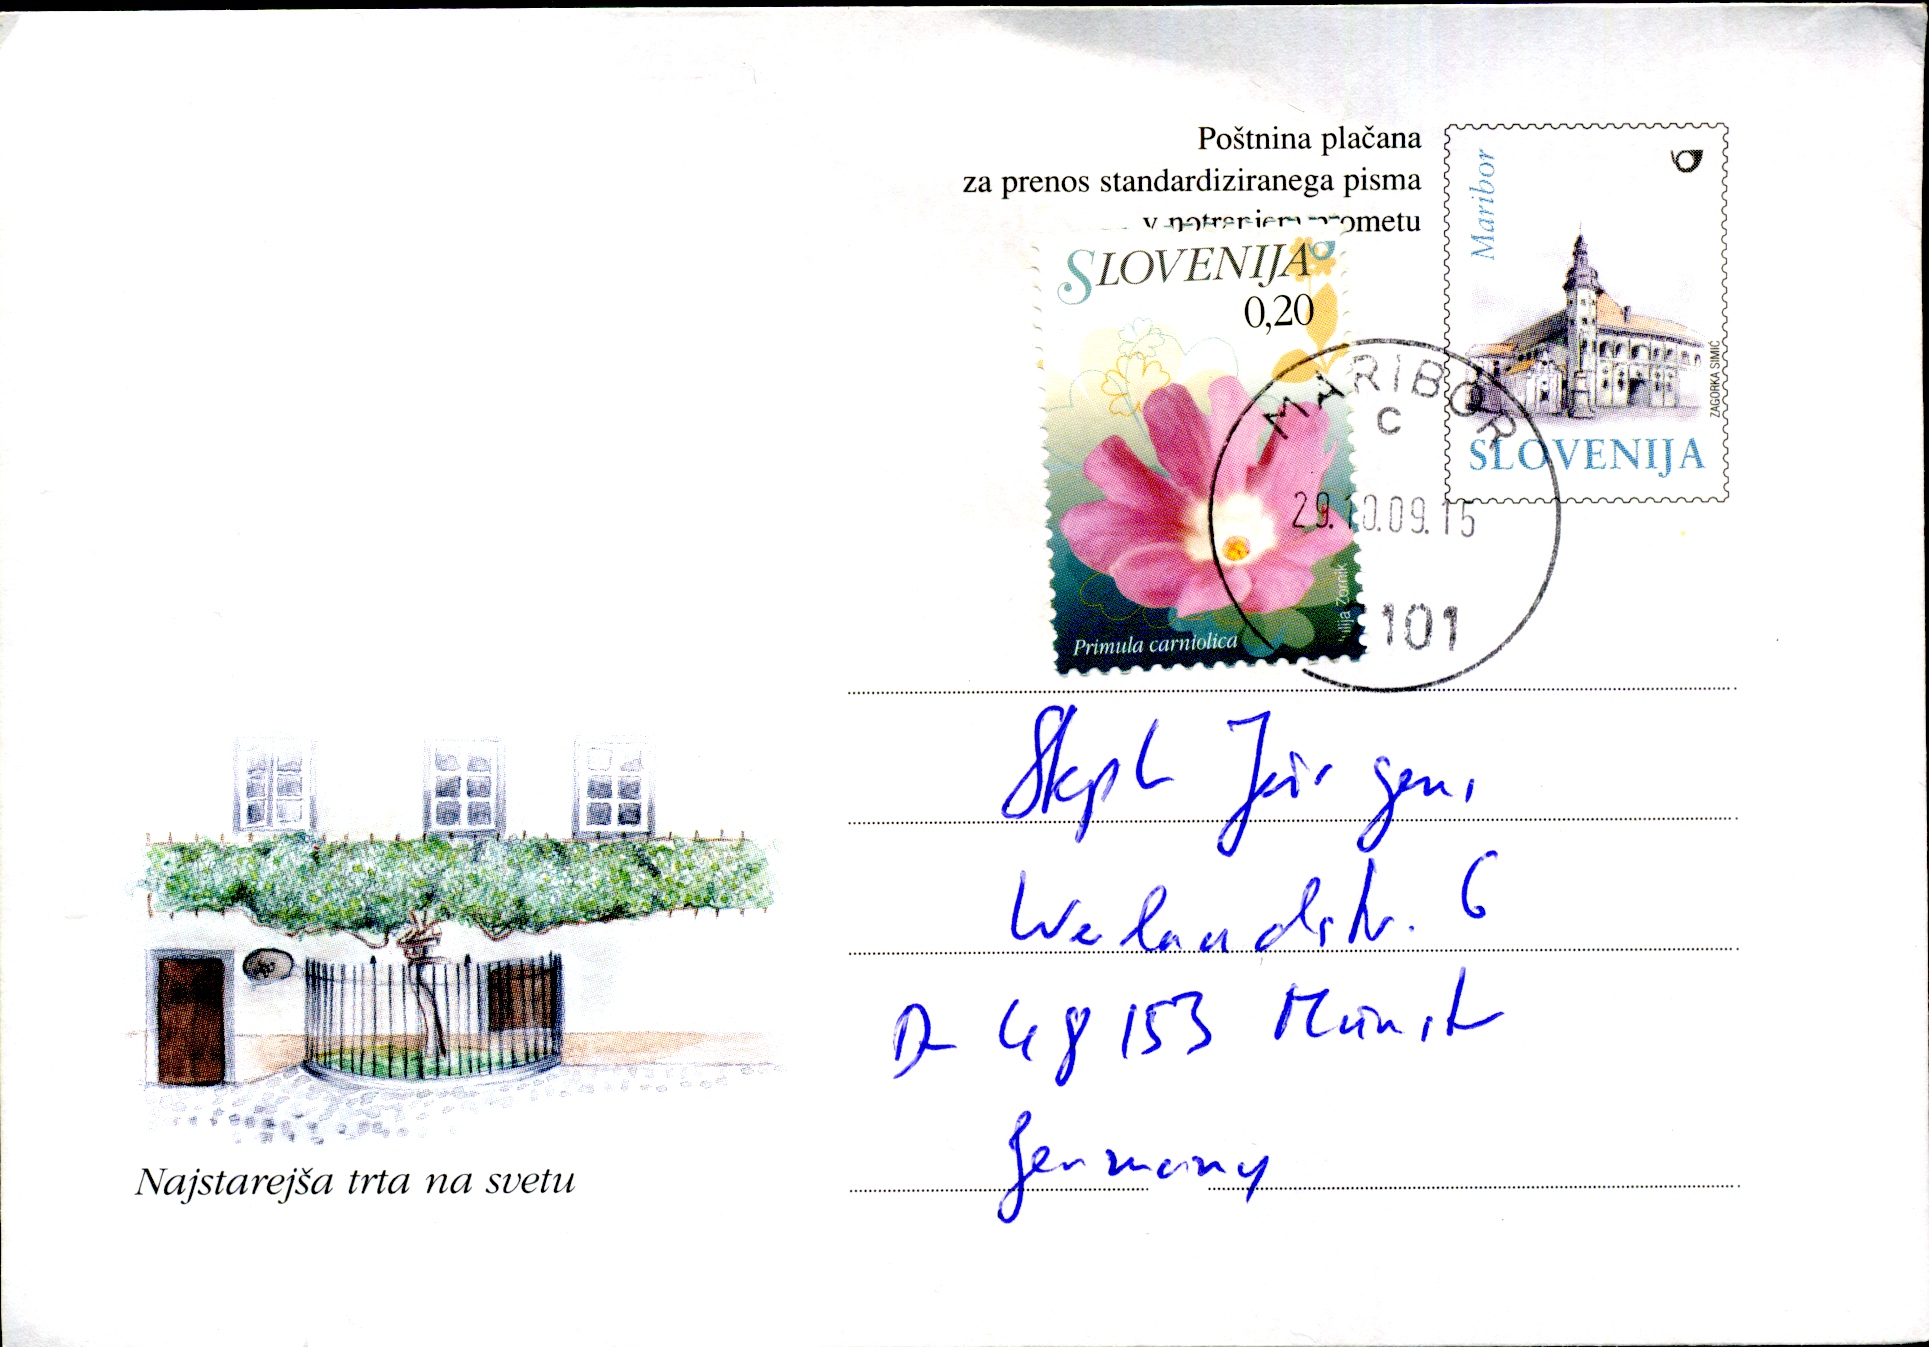 Poštnina plačana
za prenos standardiziranega pisma
v notranjem prometu
Maribor
ZAGORKA SIMIČ
SLOVENIJA
SLOVENIJA
0,20
Julija Zornik
Primula carniolica
MARIBOR
C
29.10.09.15
101
Jürgens
str. 6
D 48153 Münster
Germany
Najstarejša trta na svetu